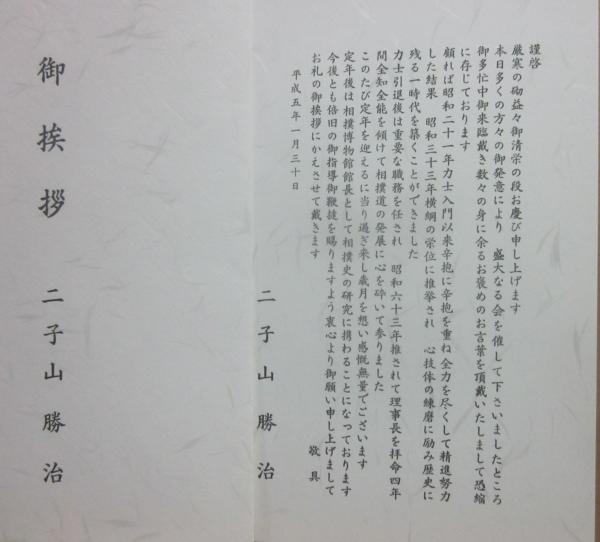 謹啓
厳寒の砌益々御清栄の段お慶び申し上げます
本日多くの方々の御発意により　盛大なる会を催して下さいましたところ
御多忙中御来臨戴き数々の身に余るお褒めのお言葉を頂戴いたしまして恐縮
に存じております
顧れば昭和二十一年力士入門以来辛抱に辛抱を重ね全力を尽くして精進努力
した結果　昭和三十三年横綱の栄位に推挙され　心技体の練磨に励み歴史に
残る一時代を築くことができました
力士引退後は重要な職務を任され　昭和六十三年推されて理事長を拝命四年
間全知全能を傾けて相撲道の発展に心を砕いて参りました
このたび定年を迎えるに当り過ぎ来し歳月を想い感慨無量でございます
定年後は相撲博物館館長として相撲史の研究に携わることになっております
今後とも倍旧の御指導御鞭撻を賜りますよう衷心より御願い申し上げまして
お礼の御挨拶にかえさせて戴きます
敬具
平成五年一月三十日
二子山勝治
御挨拶
二子山勝治